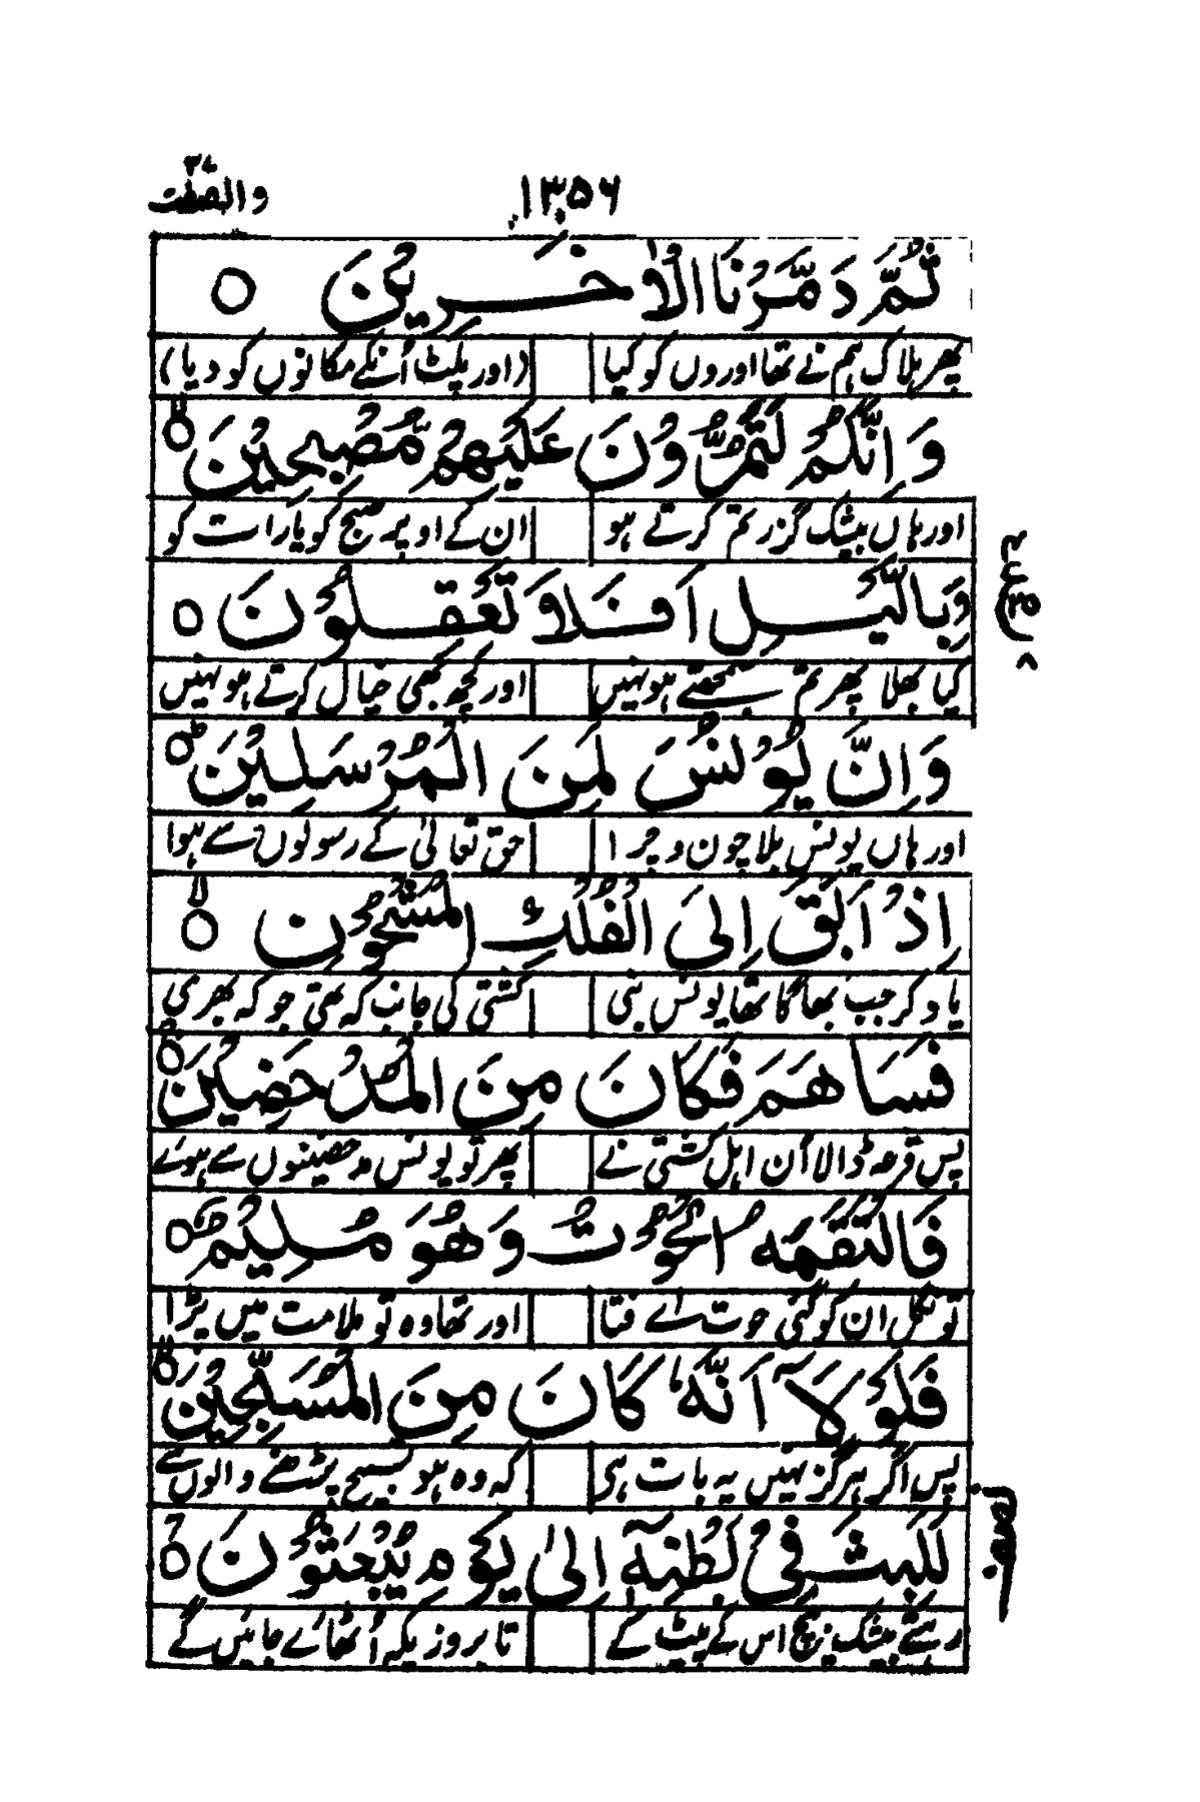 والصّٰفّٰت ۳۷
۱۳۵۶
ثُمَّ دَمَّرْنَا الْاٰخَرِيْنَ ○
پھر ہلاک ہم نے تھا اوروں کو کیا (اور پلٹ اُنکے مکانوں کو دیا)
وَاِنَّكُمْ لَتَمُرُّوْنَ عَلَيْهِمْ مُّصْبِحِيْنَ ○ لا
اور ہاں بیشک گزر تم کرتے ہو ان کے اوپر صبح کو یا رات کو
وَبِالَّيْلِ اَفَلَا تَعْقِلُوْنَ ○
کیا بھلا پھر تم سمجھتے ہو نہیں اور کچھ بھی خیال کرتے ہو نہیں
وَاِنَّ يُوْنُسَ لَمِنَ الْمُرْسَلِيْنَ ○ ط
اور ہاں یونس بلا چون و چرا حق تعالیٰ کے رسولوں سے ہوا
اِذْ اَبَقَ اِلَى الْفُلْكِ الْمَشْحُوْنِ ○ لا
یاد کر جب بھاگا تھا یونس نبی کشتی کی جانب کہ تھی جو کہ بھری
فَسَاهَمَ فَكَانَ مِنَ الْمُدْحَضِيْنَ ○
پس قرعہ ڈالا اُن اہل کشتی نے پھر تو یونس مدحضینوں سے ہوئے
فَالْتَقَمَهُ الْحُوْتُ وَهُوَ مُلِيْمٌ ○
تو نگل ان کو گئی حوت اے فتا اور تھا وہ تو ملامت میں پڑا
فَلَوْلَآ اَنَّهٗ كَانَ مِنَ الْمُسَبِّحِيْنَ ○ لا
پس اگر ہرگز نہیں یہ بات ہی کہ وہ ہو تسبیح پڑھنے والوں سے
لَلَبِثَ فِيْ بَطْنِهٖٓ اِلٰى يَوْمِ يُبْعَثُوْنَ ○
رہتے بیشک بیچ اس کے پیٹ کے تا بروز یکہ اُٹھائے جائیں گے